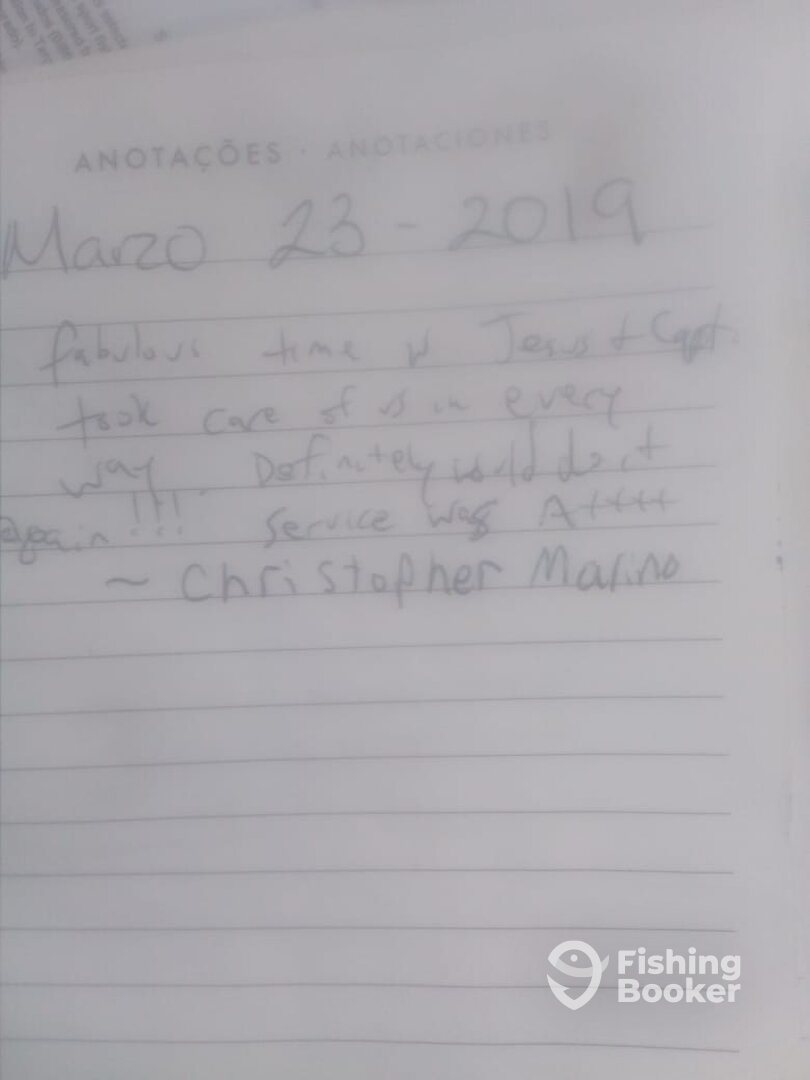 ANOTAÇÕES · ANOTACIONES
Marzo 23 - 2019
fabulous time w Jesus + Capt.
took care of us in every
way Definitely would do it
again!!! Service was A++++
~ Christopher Marino
Fishing
Booker